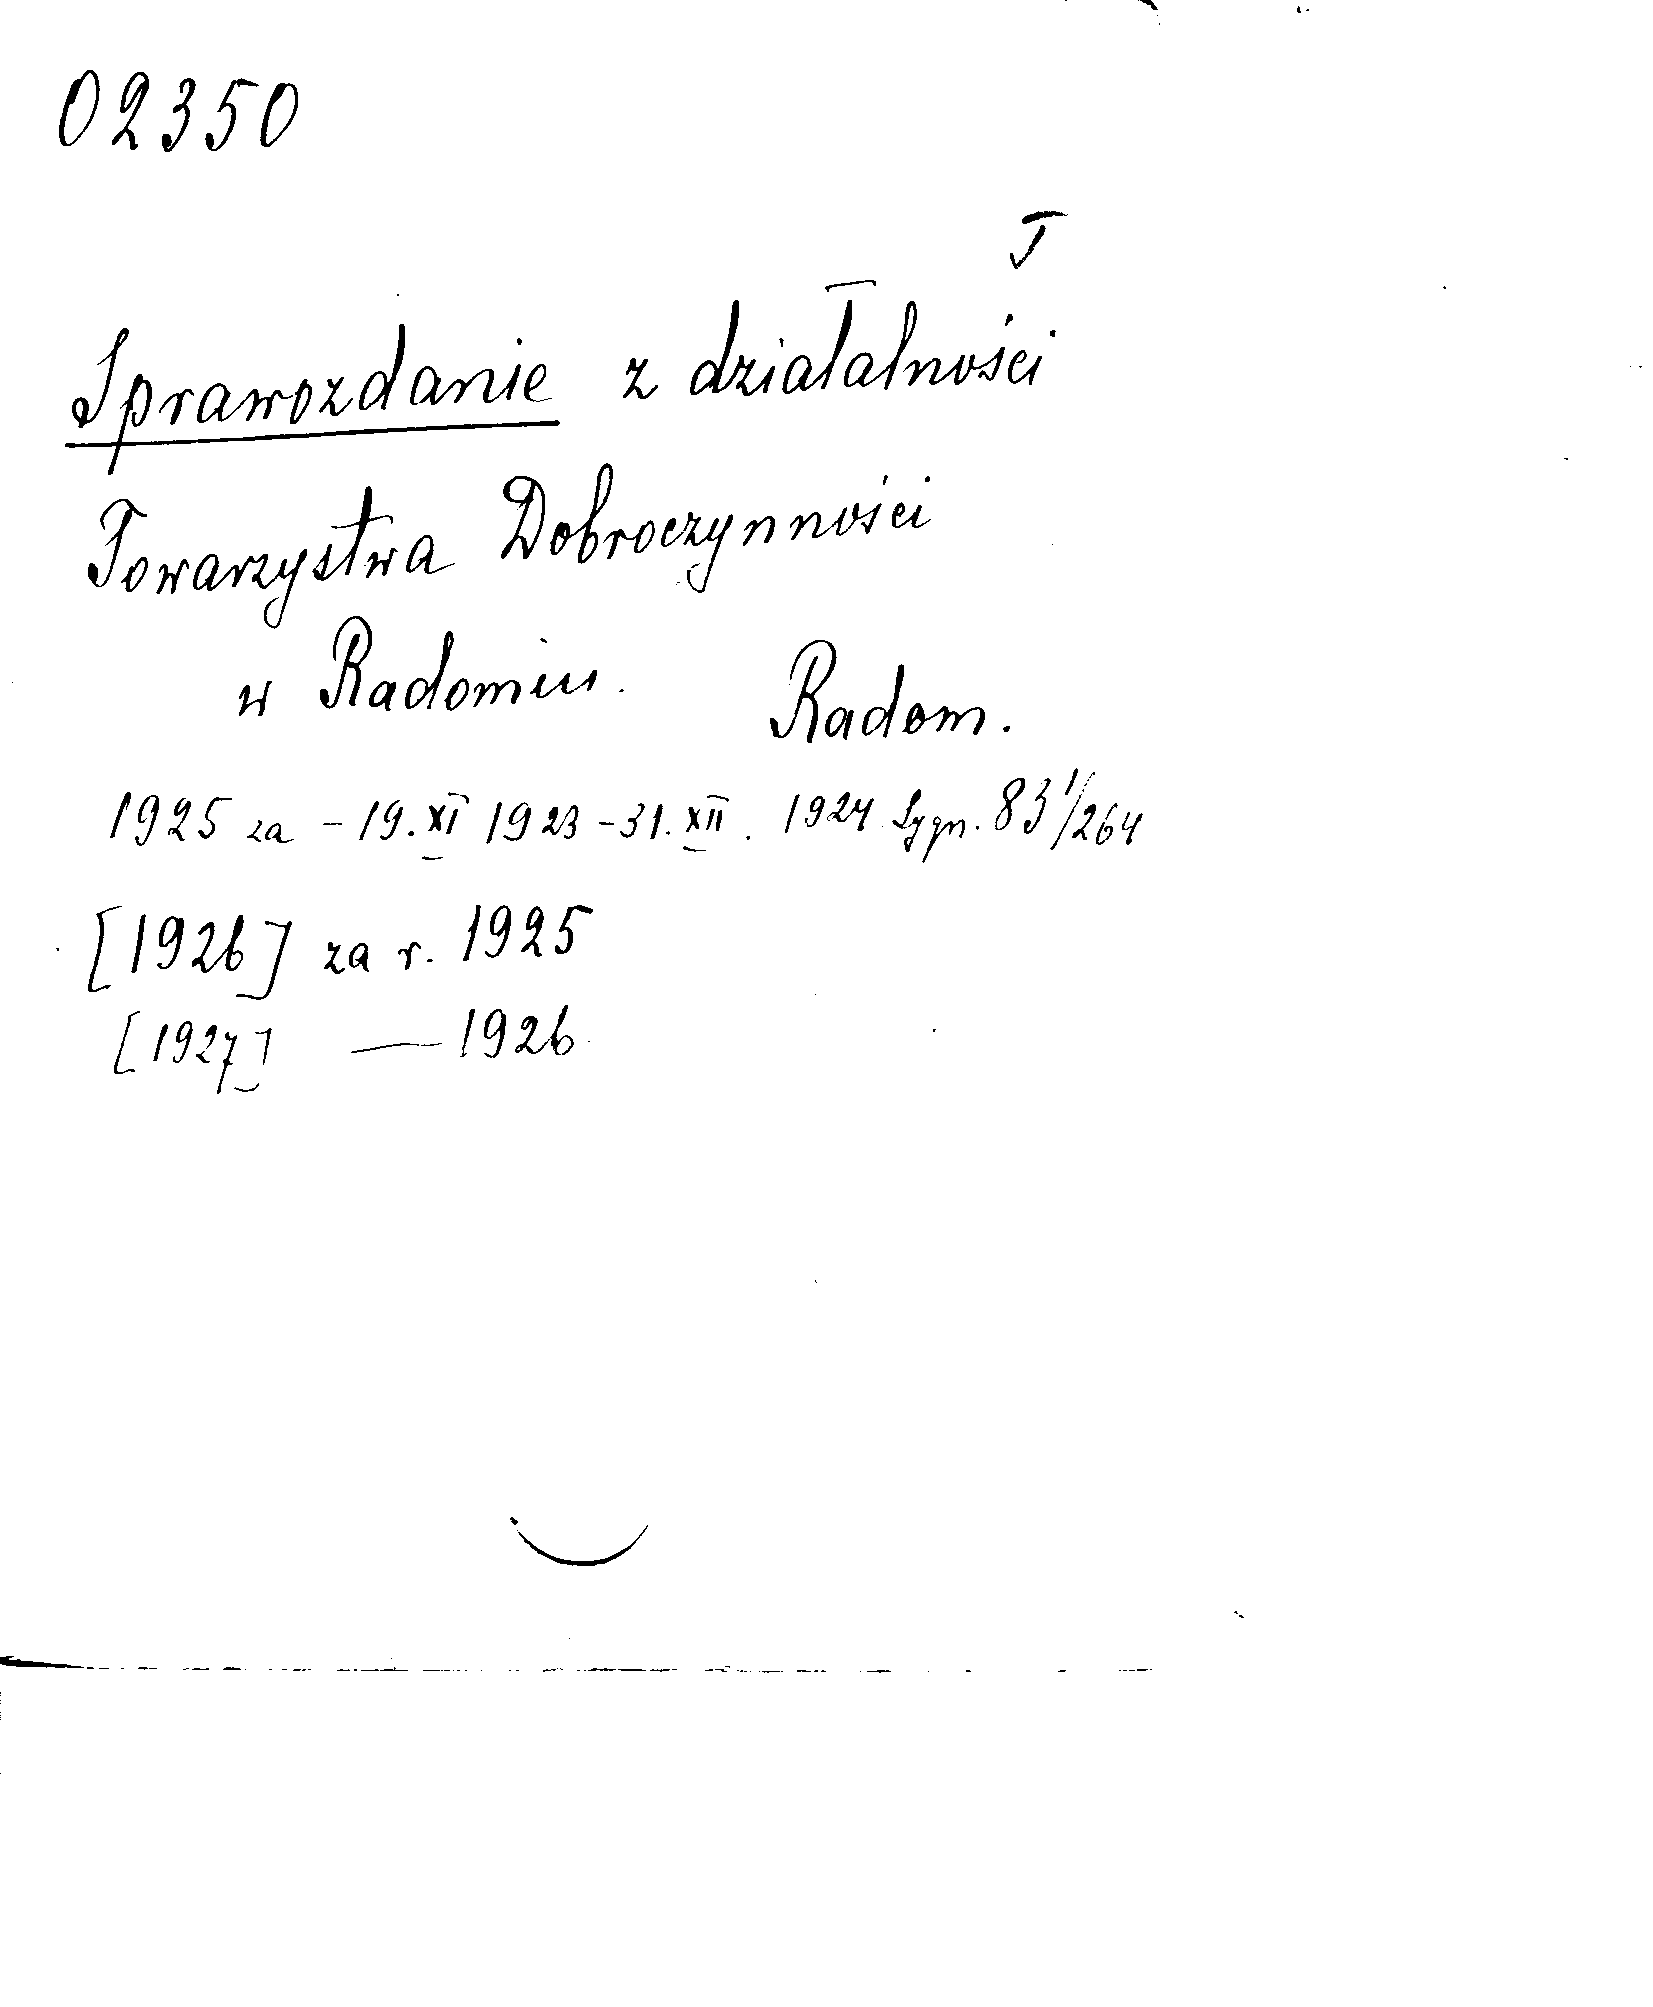 02350
I
Sprawozdanie z działalności
Towarzystwa Dobroczynności
w Radomiu. Radom.
1925 za - 19.XI 1923 - 31.XII. 1924 Sygn. 83 1/264
[1926] za r. 1925
[1927] — 1926